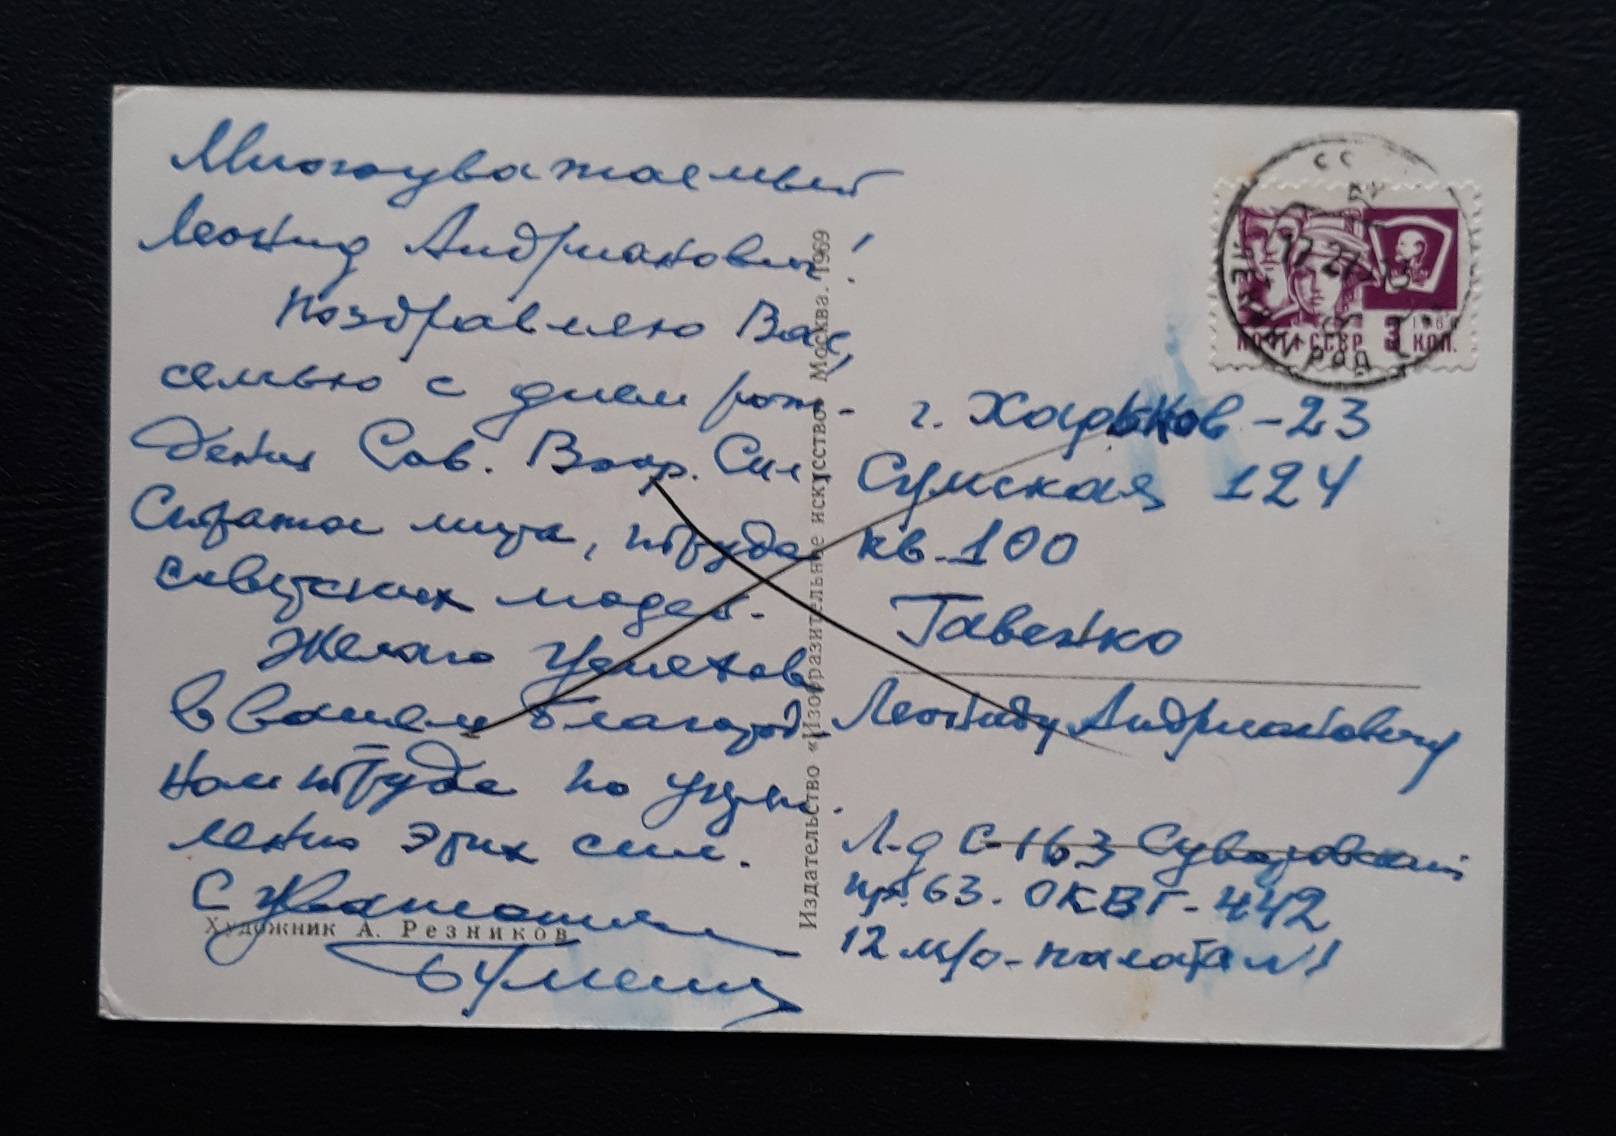 Многоуважаемый
Леонид Андрианович!
Поздравляю Вас,
семью с днем рож-
дения Сов. Воор. Сил
Стража мира, и труда
советских людей.
Желаю успехов
в Вашем благород
ном труде по укреп-
лению этих сил.
С уважением
Художник А. Резников
Издательство «Изобразительное искусство» Москва. 1969
ЛЕНИНГРАД
ПОЧТА СССР 3 КОП.
г. Харьков-23
Сумская 124
кв. 100
Гавенко
Леониду Андриановичу
Л-д С-163 Суворовский
пр. 63. ОКВГ-442
12 м/о-палата №1